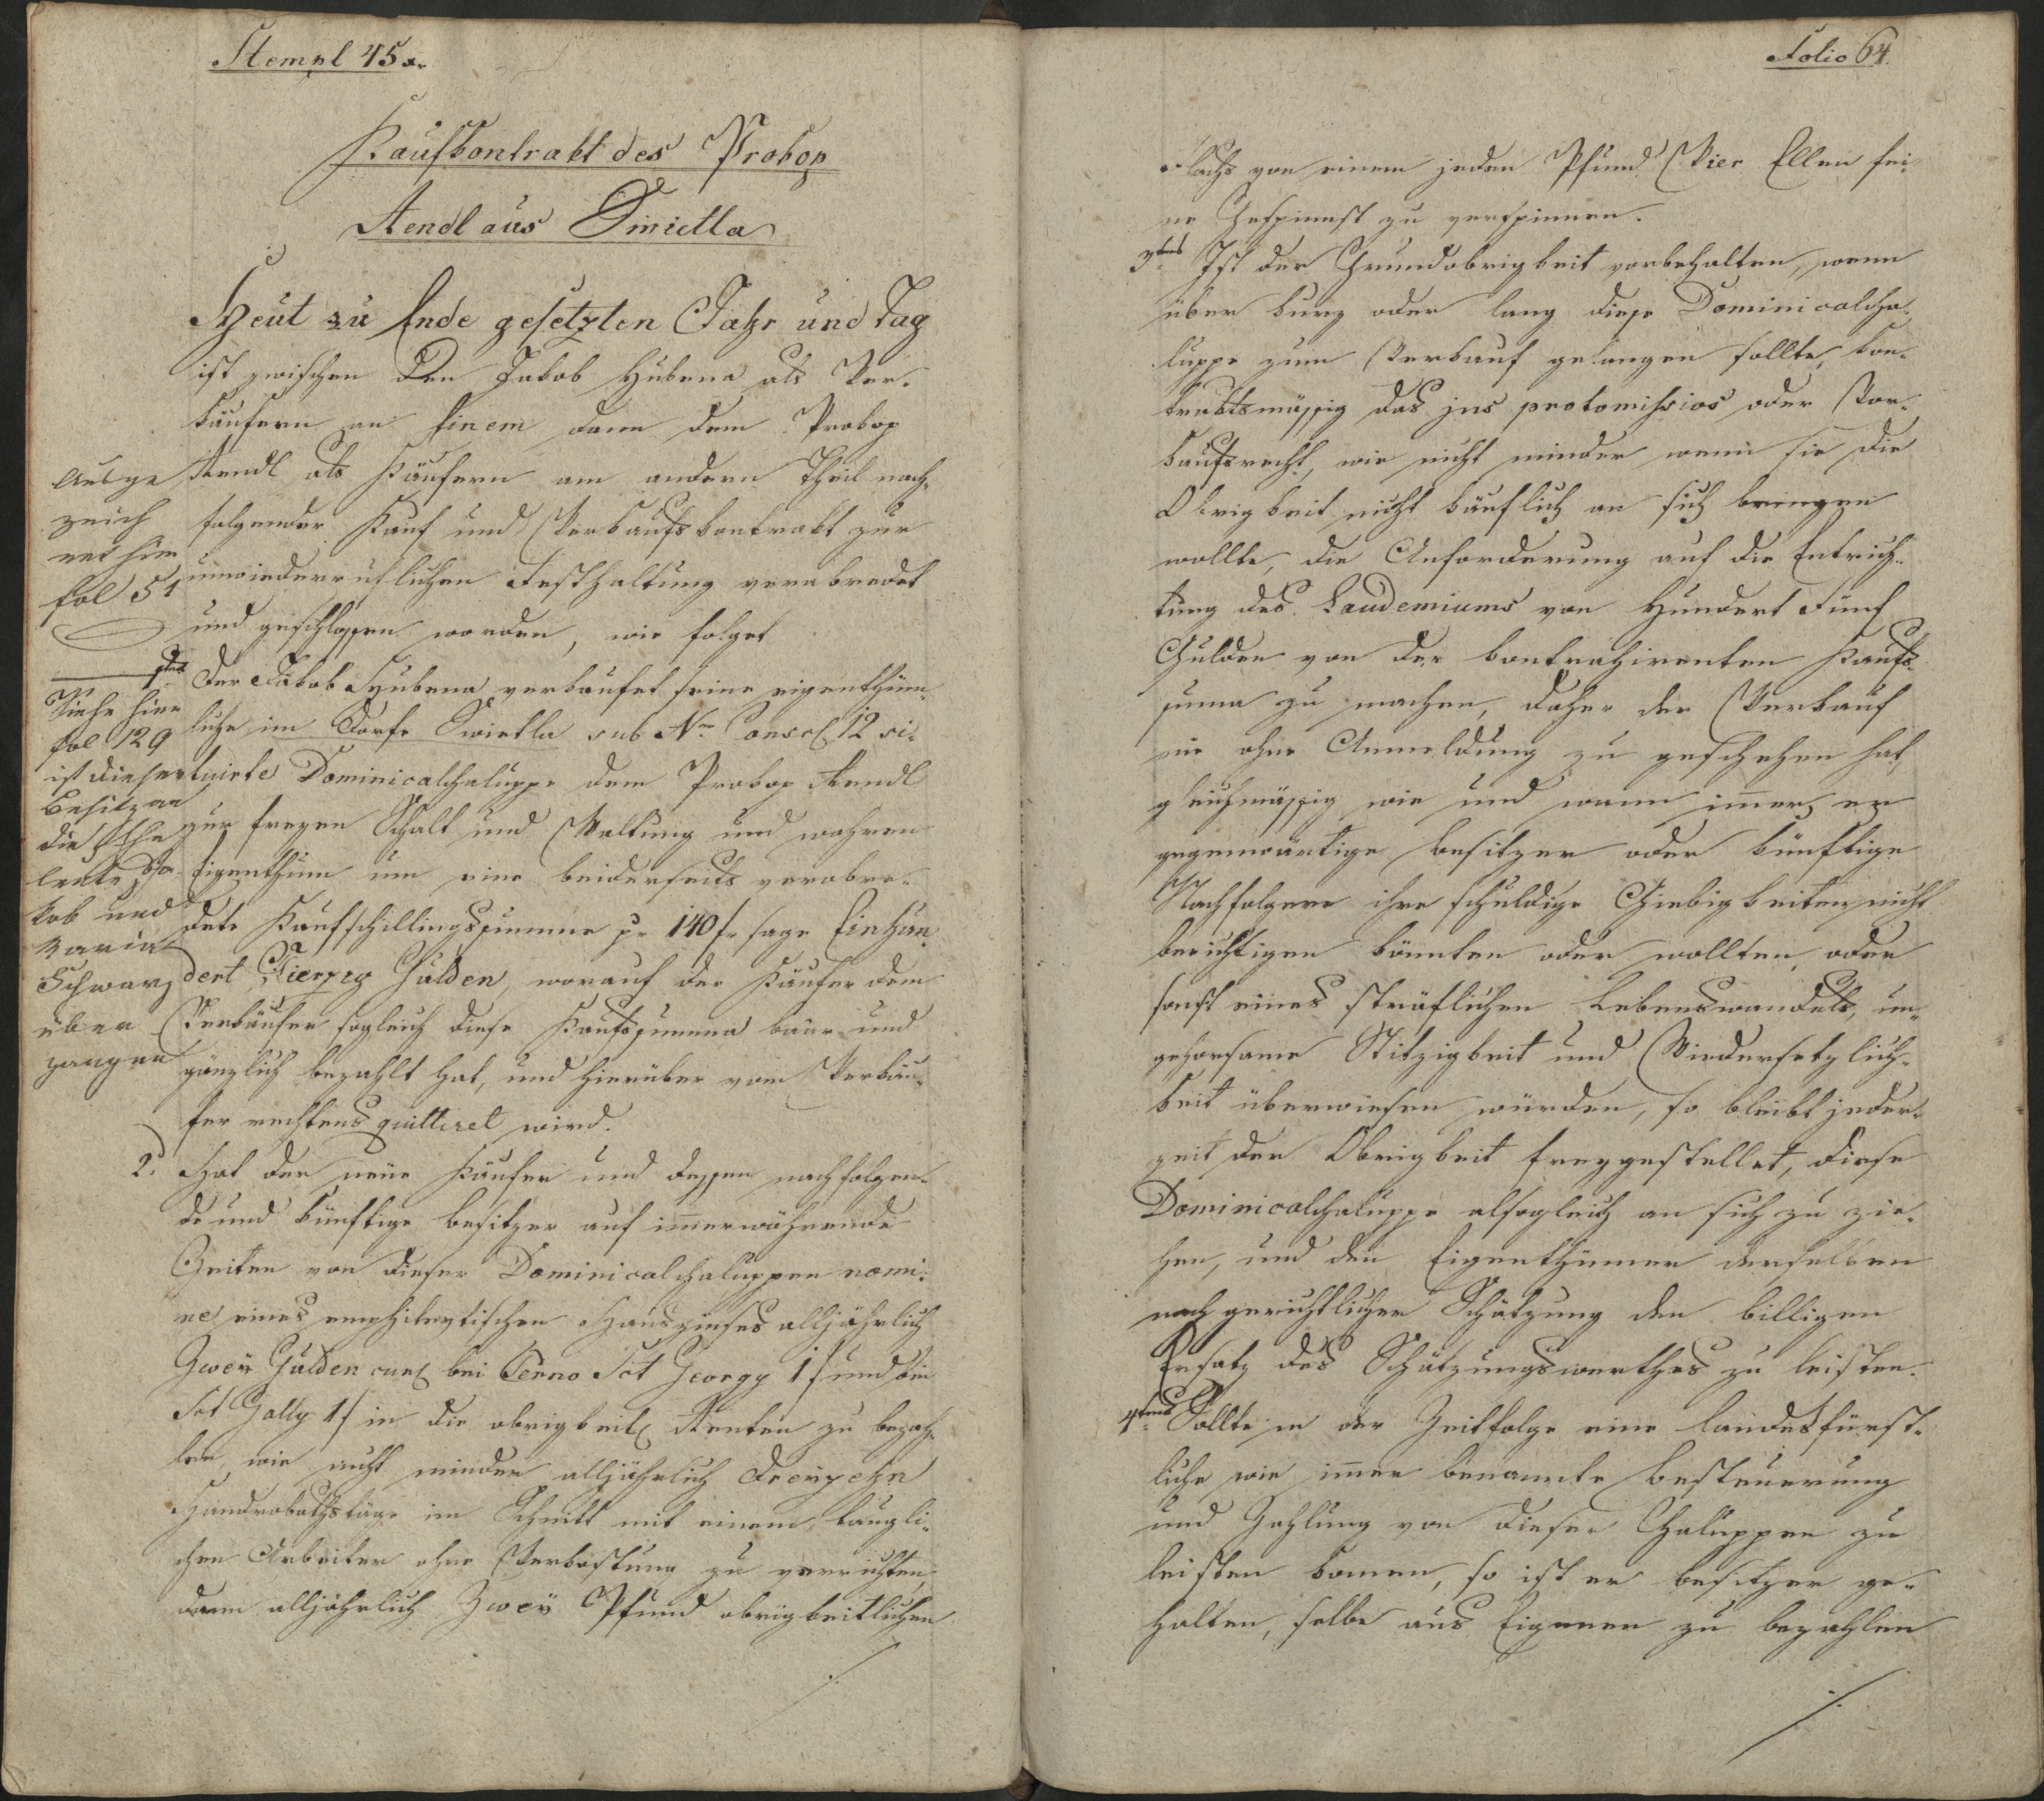 Stempl 45 xr
Kaufkontrakt des Prokop
Aendl aus Swietla
Heut zu Ende gesetzten Jahr und Tag
ist zwischen den Jakob Hubena als Ver-
käufern an Einem dann dem Prokop
Aendl als Käufern am andern Theil nach-
folgender Kauf und Verkaufskontrakt zur
unwiederruflichen Festhaltung verabredet
und geschlossen worden, wie folget
1tens Der Jakob Hubena verkaufet seine eigenthüm-
liche im Dorfe Swietla sub Nro Conscr 12 si-
tuirte Dominicalchaluppe dem Prokop Aendl
zur freyen Schalt und Waltung und wahren
Eigenthum um eine beiderseits verabre-
dete Kaufschillingssumme pr 140 f. sage Einhun-
dert Vierzig Gulden, worauf der Käufer dem
Verkäufer sogleich diese Kaufssumma baar und
gänzlich bezahlt hat, und hierüber vom Verkäu-
fer rechtens quittiret wird.
2. Hat der neue Käufer und dessen nachfolgen-
de und künftige Besitzer auf immerwährende
Zeiten von dieser Dominicalchaluppen nomi-
ne eines emphitevtischen Hauszinses alljährlich
Zwey Gulden und bei Termo Sct Georgy 1 f und bei
Sct Gally 1 f in die obrigkeitl Renten zu bezah-
len, wie nicht minder alljährlich Dreyzehn
Handrobothstäge im Schnitt mit einem taugli-
chen Arbeiter ohne Verköstung zu verrichten,
dann alljährlich Zwey Pfund obrigkeitlichen
./.
Ausge
zeich
net hier
fol 51
Siehe hier
fol 129
ist dieser
Besitz an
die Ehe
leute Ja-
kob und
Maria
Schwarz
über
gangen
Folio 64.
Flachs von einem jeden Pfund Vier Ellen fei-
ne Gespinnst zu verspinnen.
3tens Ist der Grundobrigkeit vorbehalten, wenn
über kurz oder lang diese Dominicalcha-
luppe zum Verkauf gelangen sollte, kon-
traktsmässig das jus protomiseios oder Vor-
kaufsrecht, wie nicht minder wenn sie die
Obrigkeit nicht käuflich an sich bringen
wollte, die Anforderung auf die Entrich-
tung des Laudemiums von Hundert Fünf
Gulden von der kontrahirenten Kaufs-
suma zu machen, daher der Verkauf
nie ohne Anmeldung zu geschehen hat,
gleichmässig wie und wann imer er
gegenwärtige Besitzer oder künftige
Nachfolgere ihre schuldige Giebigkeiten nicht
berichtigen könnten oder wollten, oder
sonst eines sträflichen Lebenswandels, un-
gehorsame Stitzigkeit und Wiedersetzlich-
keit überwiesen würden, so bleibt jeder-
zeit der Obrigkeit freygestellet, diese
Dominicalchaluppe alsogleich an sich zu zie-
hen, und den Eigenthümer derselben
nach gerichtlicher Schätzung den billigen
Ersatz des Schätzungswerthes zu leisten.
4tens Sollte in der Zeitfolge eine landesfürst-
liche wie imer benannte Besteuerung
und Zahlung von dieser Chaluppen zu
leisten komen, so ist er Besitzer ge-
halten, selbe aus Eigenen zu bezahlen
./.